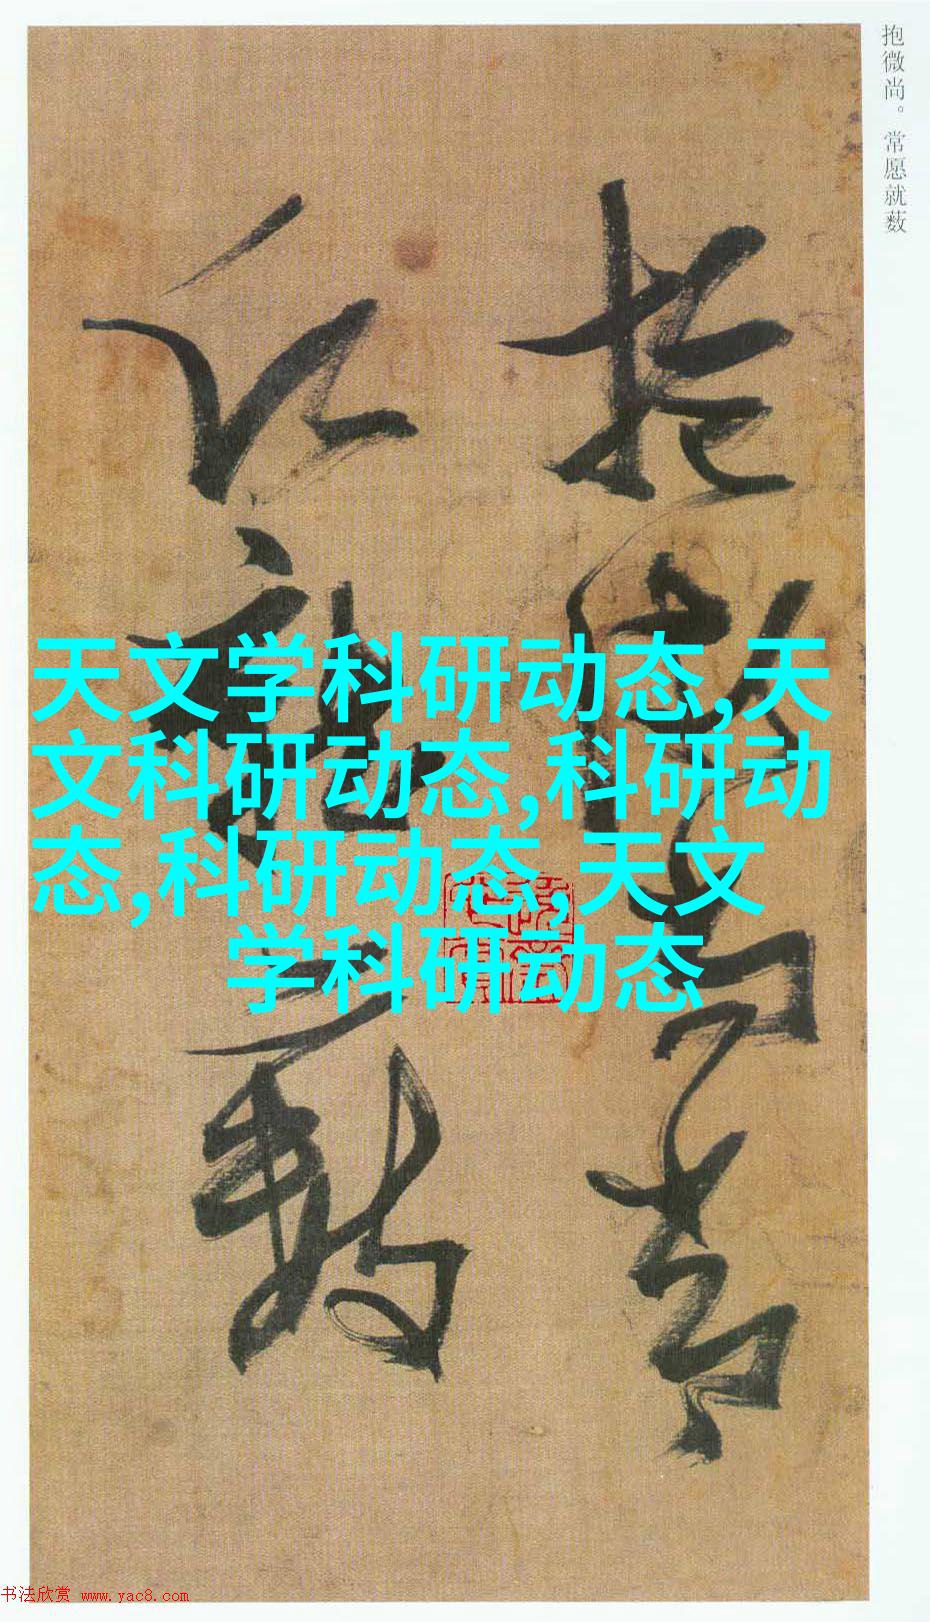 抱微尚。常愿就薮
抱微尚常
願就藪
天文学科研动态,天
文科研动态,科研动
态,科研动态,天文
学科研动态
书法欣赏 www.yac8.com